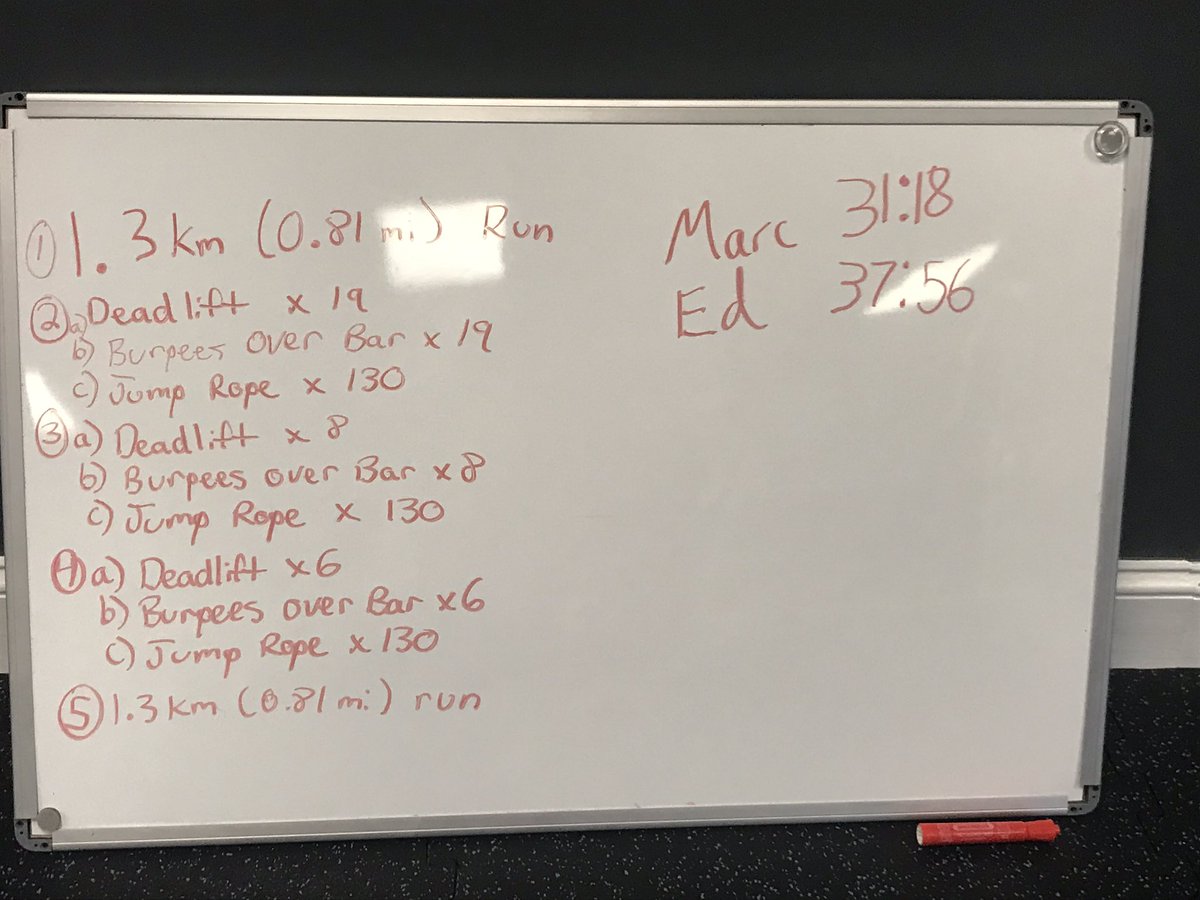 ① 1.3 km (0.81 mi) Run
② a) Deadlift x 19
b) Burpees over Bar x 19
c) Jump Rope x 130
③ a) Deadlift x 8
b) Burpees over Bar x 8
c) Jump Rope x 130
④ a) Deadlift x 6
b) Burpees over Bar x 6
c) Jump Rope x 130
⑤ 1.3 km (0.81 mi) run
Marc 31:18
Ed 37:56